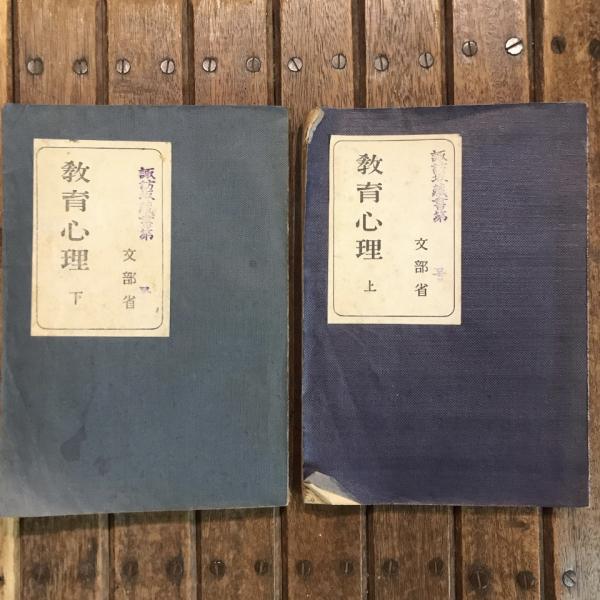 教育心理
上
文部省
号
教育心理
下
文部省